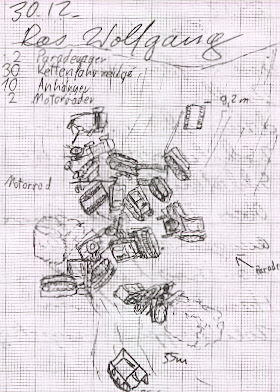 30.12.
Ras Wolfgang
2 Paradewagen
30 Kettenfahrzeuge
10 Anhänger
2 Motorräder
9,2m
Motorrad
Parade
55m